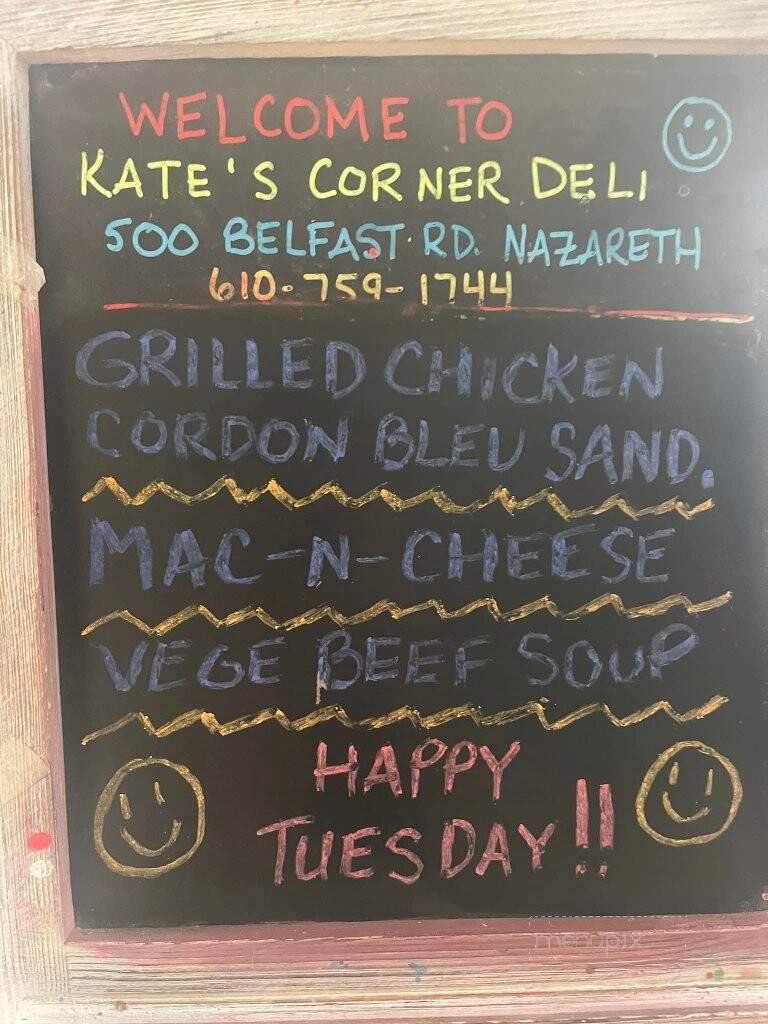 WELCOME TO
KATE'S CORNER DELI
500 BELFAST RD. NAZARETH
610-759-1744
GRILLED CHICKEN
CORDON BLEU SAND.
MAC-N-CHEESE
VEGE BEEF SOUP
HAPPY
TUESDAY!!
menupix